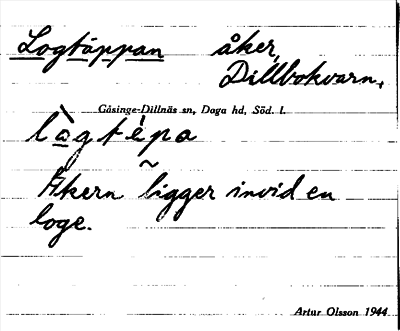 Logtäppan åker,
Dillbokvarn,
Gåsinge-Dillnäs sn, Daga hd, Söd. l.
lògtépa
Åkern ligger invid en
loge.
Artur Olsson 1944